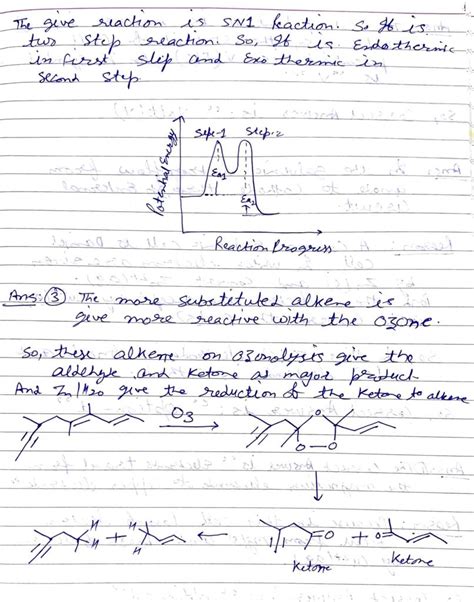 The give reaction is SN1 Reaction. So It is
two step reaction. So, It is Endothermic
in first step and Exo thermic in
second step
Step-1 Step-2
Potential Energy
Ea1
Ea2
Reaction Progress
Ans: ③ The more substituted alkene is
give more reactive with the O3one.
So, these alkene on O3onolysis give the
aldehyde and Ketone as major product
And Zn/H2O give the reduction of the Ketone to alkene
O3
O
O–O
H H
H + H
O + O
Ketone Ketone